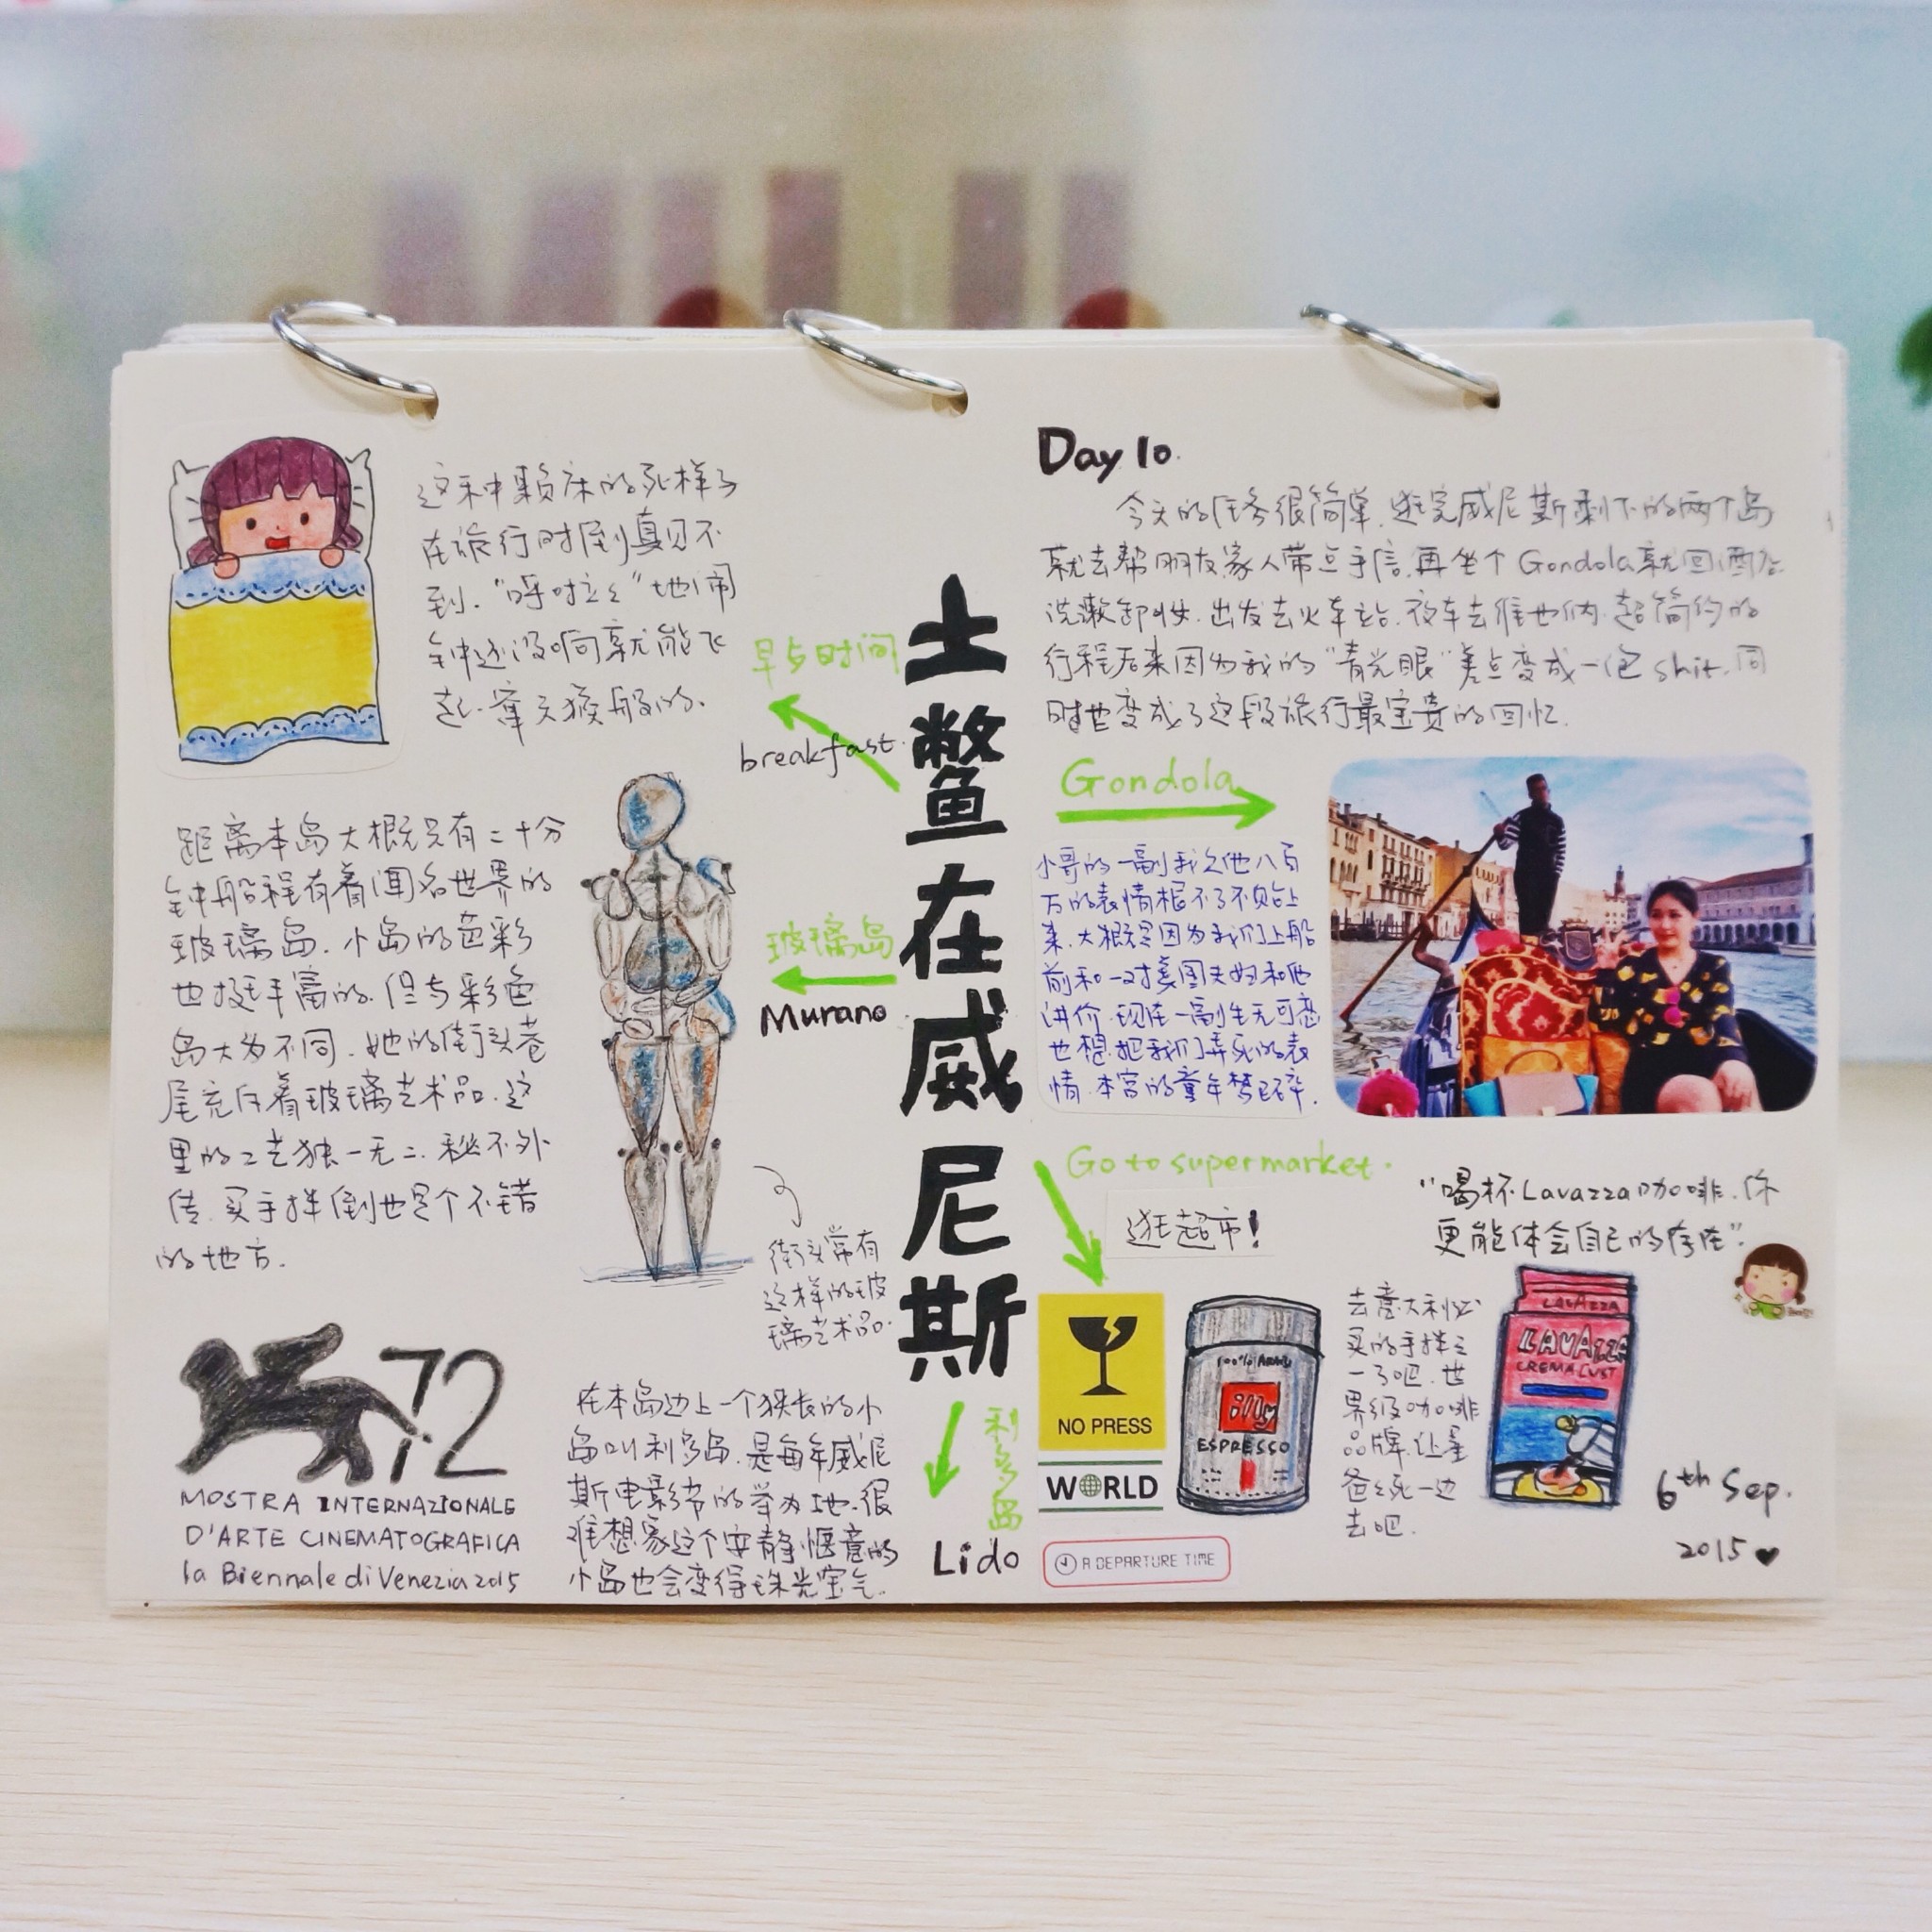 这种赖床的死样子
在旅行时倒真见不
到."呼啦々"地闹
钟还没响就能飞
起.窜天猴般的.
早点时间
breakfast.
距离本岛大概只有二十分
钟船程有着闻名世界的
玻璃岛.小岛的色彩
也挺丰富的.但与彩色
岛大为不同.她的街头巷
尾充斥着玻璃艺术品.这
里的工艺独一无二.秘不外
传.买手拌倒也是个不错
的地方.
玻璃岛
Murano
街头常有
这样的玻
璃艺术品.
72
MOSTRA INTERNAZIONALE
D'ARTE CINEMATOGRAFICA
la Biennale di Venezia 2015
在本岛边上一个狭长的小
岛叫利多岛.是每年威尼
斯电影节的举办地.很
难想象这个安静惬意的
小岛也会变得珠光宝气.
利多岛
Lido
土鳖在威尼斯
Day 10.
今天的任务很简单.逛完威尼斯剩下的两个岛
就去帮朋友家人带点手信.再坐个Gondola就回酒店
洗漱卸妆.出发去火车站.夜车去维也纳.超简约的
行程后来因为我的"青光眼"差点变成一包shit.同
时也变成了这段旅行最宝贵的回忆.
Gondola
小哥的一副我欠他八百
万的表情框不了不贴上
来.大概是因为我们上船
前和一对美国夫妇和他
讲价.现在一副生无可恋
也想把我们弄死的表
情.本宫的童年梦已碎.
Go to supermarket.
逛超市!
NO PRESS
WORLD
A DEPARTURE TIME
ESPRESSO
"喝杯Lavazza咖啡.你
更能体会自己的存在".
去意大利必
买的手拌之
一了吧.世
界级咖啡
品牌.让星
爸々死一边
去吧.
LAVAZZA
LAVAZZA
6th Sep.
2015